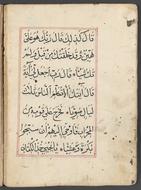 قَالَ كَذَلِكَ قَالَ رَبُّكَ هُوَ عَلَيَّ
هَيِّنٌ وَقَدْ خَلَقْتُكَ مِنْ قَبْلُ وَلَمْ
تَكُ شَيْئًا قَالَ رَبِّ اجْعَلْ لِي آيَةً
قَالَ آيَتُكَ أَلَّا تُكَلِّمَ النَّاسَ ثَلَثَ
لَيَالٍ سَوِيًّا فَخَرَجَ عَلَى قَوْمِهِ مِنَ
الْمِحْرَابِ فَأَوْحَى إِلَيْهِمْ أَنْ سَبِّحُوا
بُكْرَةً وَعَشِيًّا يَا يَحْيَى خُذِ الْكِتَابَ